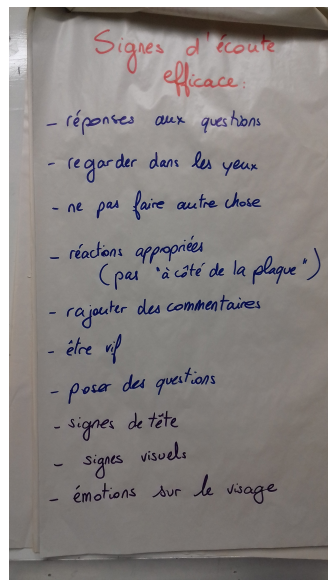 Signes d'écoute
efficace:
- réponses aux questions
- regarder dans les yeux
- ne pas faire autre chose
- réactions appropriées
(pas "à côté de la plaque")
- rajouter des commentaires
- être vif
- poser des questions
- signes de tête
- signes visuels
- émotions sur le visage